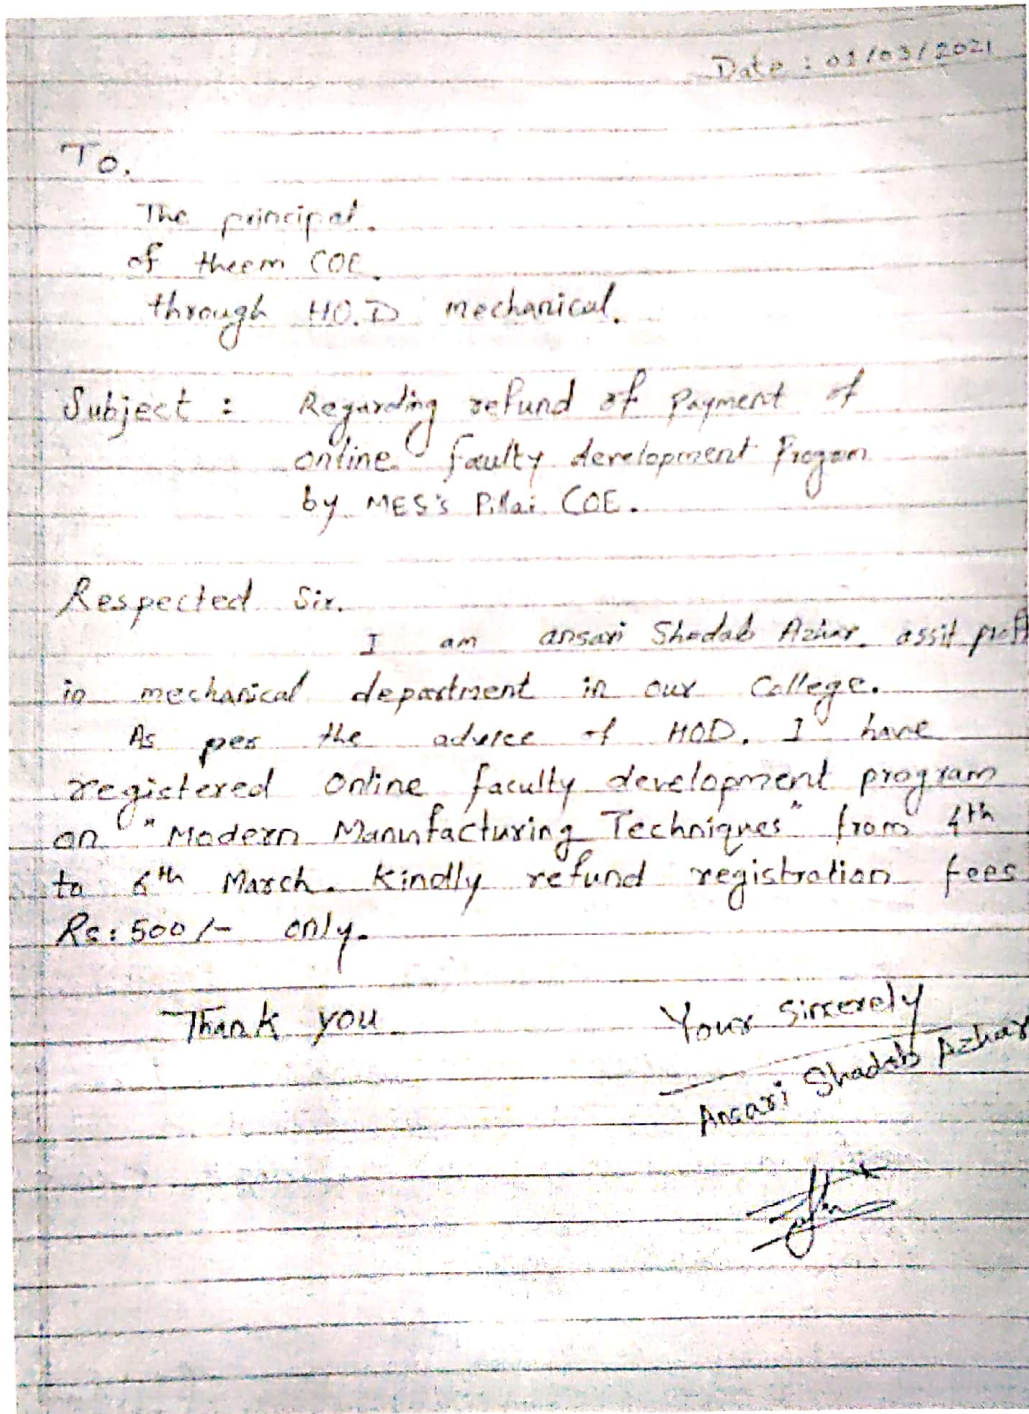 Date : 01/03/2021
To,
The principal.
of theem COE.
through HO.D mechanical.
Subject : Regarding refund of Payment of
online faulty development Progam
by MES's Pillai COE.
Respected Sir.
I am ansari Shadab Azhar. assit proff
in mechanical department in our College.
As per the advice of HOD. I have
registered Online faculty development program
on "Modern Manufacturing Techniques" from 4th
to 6th March. Kindly refund registration fees
Rs: 500/- only.
Thank you
Your Sincerely
Ansari Shadab Azhar